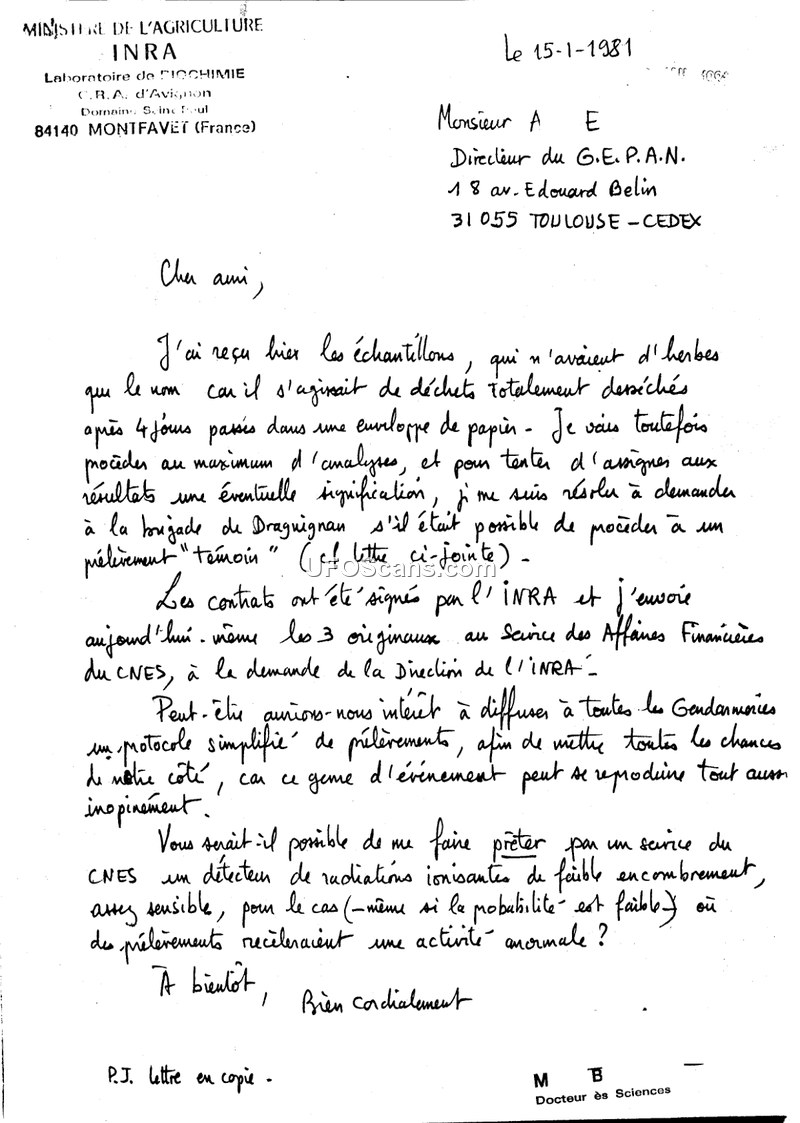 MINISTERE DE L'AGRICULTURE
INRA
Laboratoire de BIOCHIMIE
C.R.A. d'Avignon
Domaine Saint Paul
84140 MONTFAVET (France)
Le 15-1-1981
Monsieur A E
Directeur du G.E.P.A.N.
18 av. Edouard Belin
31055 TOULOUSE - CEDEX
Cher ami,
J'ai reçu hier les échantillons, qui n'avaient d'herbes
que le nom car il s'agissait de déchets totalement desséchés
après 4 jours passés dans une enveloppe de papier - Je vais toutefois
procéder au maximum d'analyses, et pour tenter d'assigner aux
résultats une éventuelle signification, je me suis résolu à demander
à la brigade de Draguignan s'il était possible de procéder à un
prélèvement "témoin" (cf lettre ci-jointe) -
UFOScans.com
Les contrats ont été signés par l'INRA et j'envoie
aujourd'hui-même les 3 originaux au Service des Affaires Financières
du CNES, à la demande de la Direction de l'INRA -
Peut-être aurions-nous intérêt à diffuser à toutes les Gendarmeries
un protocole simplifié de prélèvements, afin de mettre toutes les chances
de notre côté, car ce genre d'événement peut se reproduire tout aussi
inopinément.
Vous serait-il possible de me faire prêter par un service du
CNES un détecteur de radiations ionisantes de faible encombrement,
assez sensible, pour le cas (-même si la probabilité est faible-) où
des prélèvements recèleraient une activité anormale ?
À bientôt,
Bien cordialement
P.J. lettre en copie -
M B
Docteur ès Sciences